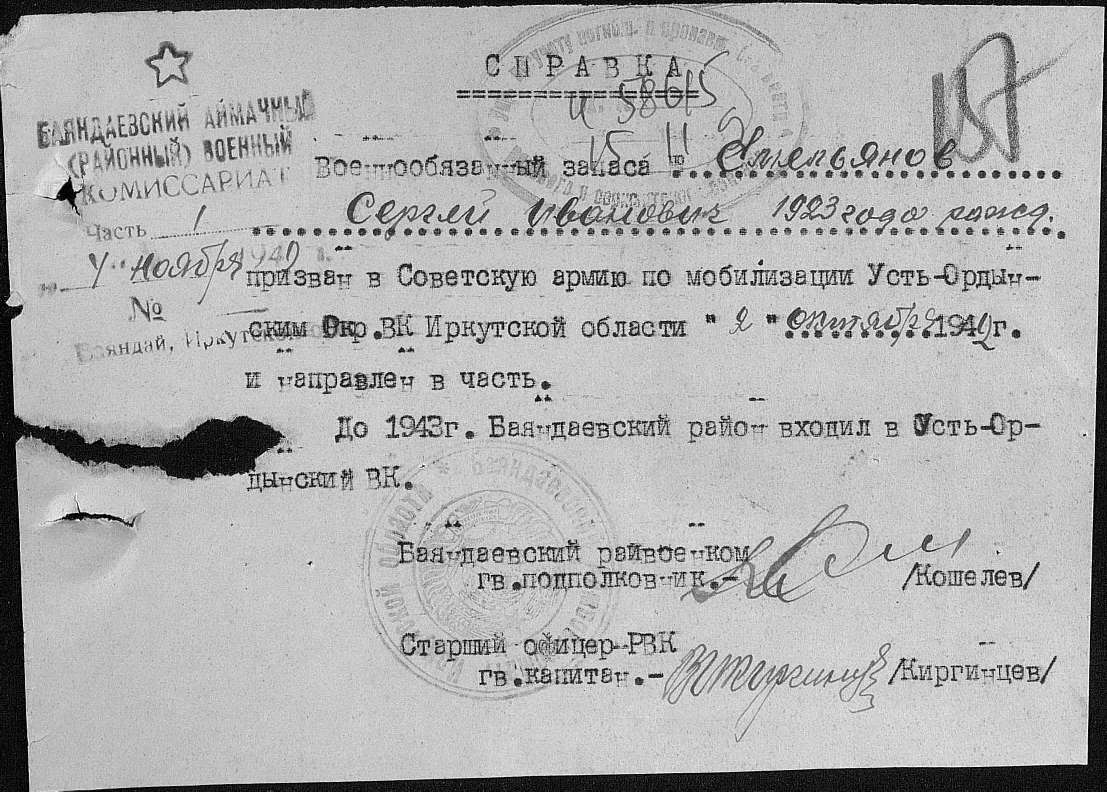 СПРАВКА
и 58615
15 11
157
БАЯНДАЕВСКИЙ АЙМАЧНЫЙ
(РАЙОННЫЙ) ВОЕННЫЙ
КОМИССАРИАТ
Часть 1
ноября
№
Баяндай, Иркутской
Военнообязанный запаса р. Емельянов
Сергей Иванович 1923 года рожд.
призван в Советскую армию по мобилизации Усть-Ордын-
ским Окр.ВК Иркутской области "2" октября 1942г.
и направлен в часть.
До 1943г. Баяндаевский район входил в Усть-Ор-
дынский ВК.
Баяндаевский райвоенком
гв.подполковник.- /Кошелев/
Старший офицер РВК
гв.капитан.- /Киргинцев/